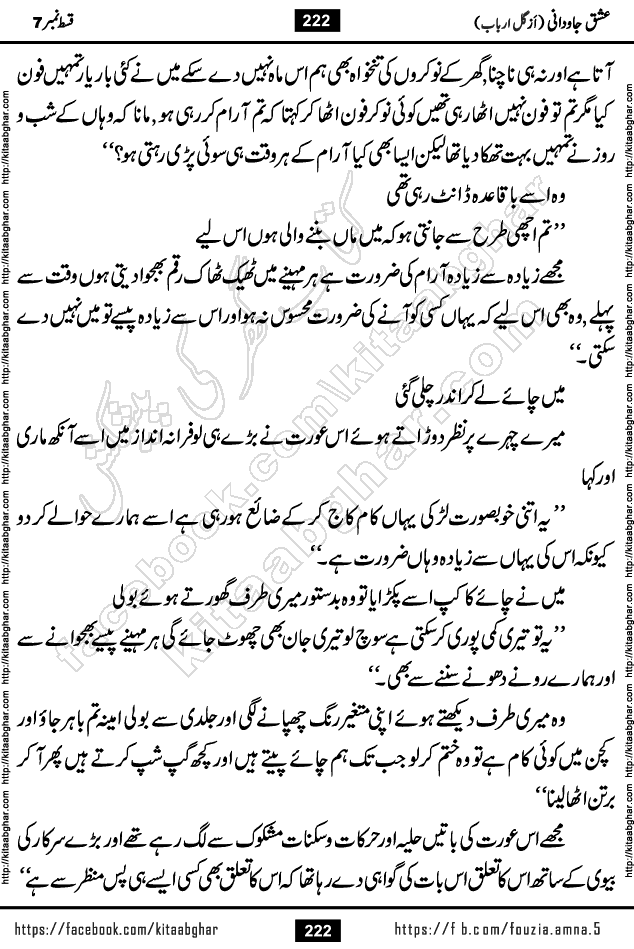 عشق جاودانی (از گل ارباب)
222
قسط نمبر 7
آتا ہے اور نہ ہی ناچنا, گھر کے نوکروں کی تنخواہ بھی ہم اس ماہ نہیں دے سکے میں نے کئی بار یار تمہیں فون
کیا مگر تم تو فون نہیں اٹھا رہی تھیں کوئی نوکر فون اٹھا کر کہتا کہ تم آرام کر رہی ہو, مانا کہ وہاں کے شب و
روز نے تمہیں بہت تھکا دیا تھا لیکن ایسا بھی کیا آرام کے ہر وقت ہی سوئی پڑی رہتی ہو؟‘‘
وہ اسے باقاعدہ ڈانٹ رہی تھی
’’تم اچھی طرح سے جانتی ہو کہ میں ماں بننے والی ہوں اس لیے
مجھے زیادہ سے زیادہ آرام کی ضرورت ہے ہر مہینے میں ٹھیک ٹھاک رقم بھجوا دیتی ہوں وقت سے
پہلے, وہ بھی اس لیے کہ یہاں کسی کو آنے کی ضرورت محسوس نہ ہو اور اس سے زیادہ پیسے تو میں نہیں دے
سکتی۔‘‘
میں چائے لے کر اندر چلی گئی
میرے چہرے پر نظر دوڑاتے ہوئے اس عورت نے بڑے ہی لوفرانہ انداز میں اسے آنکھ ماری
اور کہا
’’یہ اتنی خوبصورت لڑکی یہاں کام کاج کر کے ضائع ہو رہی ہے اسے ہمارے حوالے کر دو
کیونکہ اس کی یہاں سے زیادہ وہاں ضرورت ہے۔‘‘
میں نے چائے کا کپ اسے پکڑایا تو وہ بدستور میری طرف گھورتے ہوئے بولی
’’یہ تو تیری کمی پوری کر سکتی ہے سوچ لو تیری جان بھی چھوٹ جائے گی ہر مہینے پیسے بھجوانے سے
اور ہمارے رونے دھونے سننے سے بھی۔‘‘
وہ میری طرف دیکھتے ہوئے اپنی متغیر رنگ چھپانے لگی اور جلدی سے بولی امینہ تم باہر جاؤ اور
کچن میں کوئی کام ہے تو وہ ختم کر لو جب تک ہم چائے پیتے ہیں اور کچھ گپ شپ کرتے ہیں پھر آ کر
برتن اٹھا لینا‘‘
مجھے اس عورت کی باتیں حلیہ اور حرکات و سکنات مشکوک سے لگ رہے تھے اور بڑے سرکار کی
بیوی کے ساتھ اس کا تعلق اس بات کی گواہی دے رہا تھا کہ اس کا تعلق بھی کسی ایسے ہی پس منظر سے ہے‘‘
کتاب گھر کی پیشکش
facebook.com\kitaabghar
kitaabghar.com
http://kitaabghar.com http://kitaabghar.com http://kitaabghar.com http://kitaabghar.com http://kitaabghar.com http://kitaabghar.com http://kitaabghar.com http://kitaabghar.com
http://kitaabghar.com http://kitaabghar.com http://kitaabghar.com http://kitaabghar.com http://kitaabghar.com http://kitaabghar.com http://kitaabghar.com http://kitaabghar.com
https://facebook.com/kitaabghar
222
https://f b.com/fouzia.amna.5